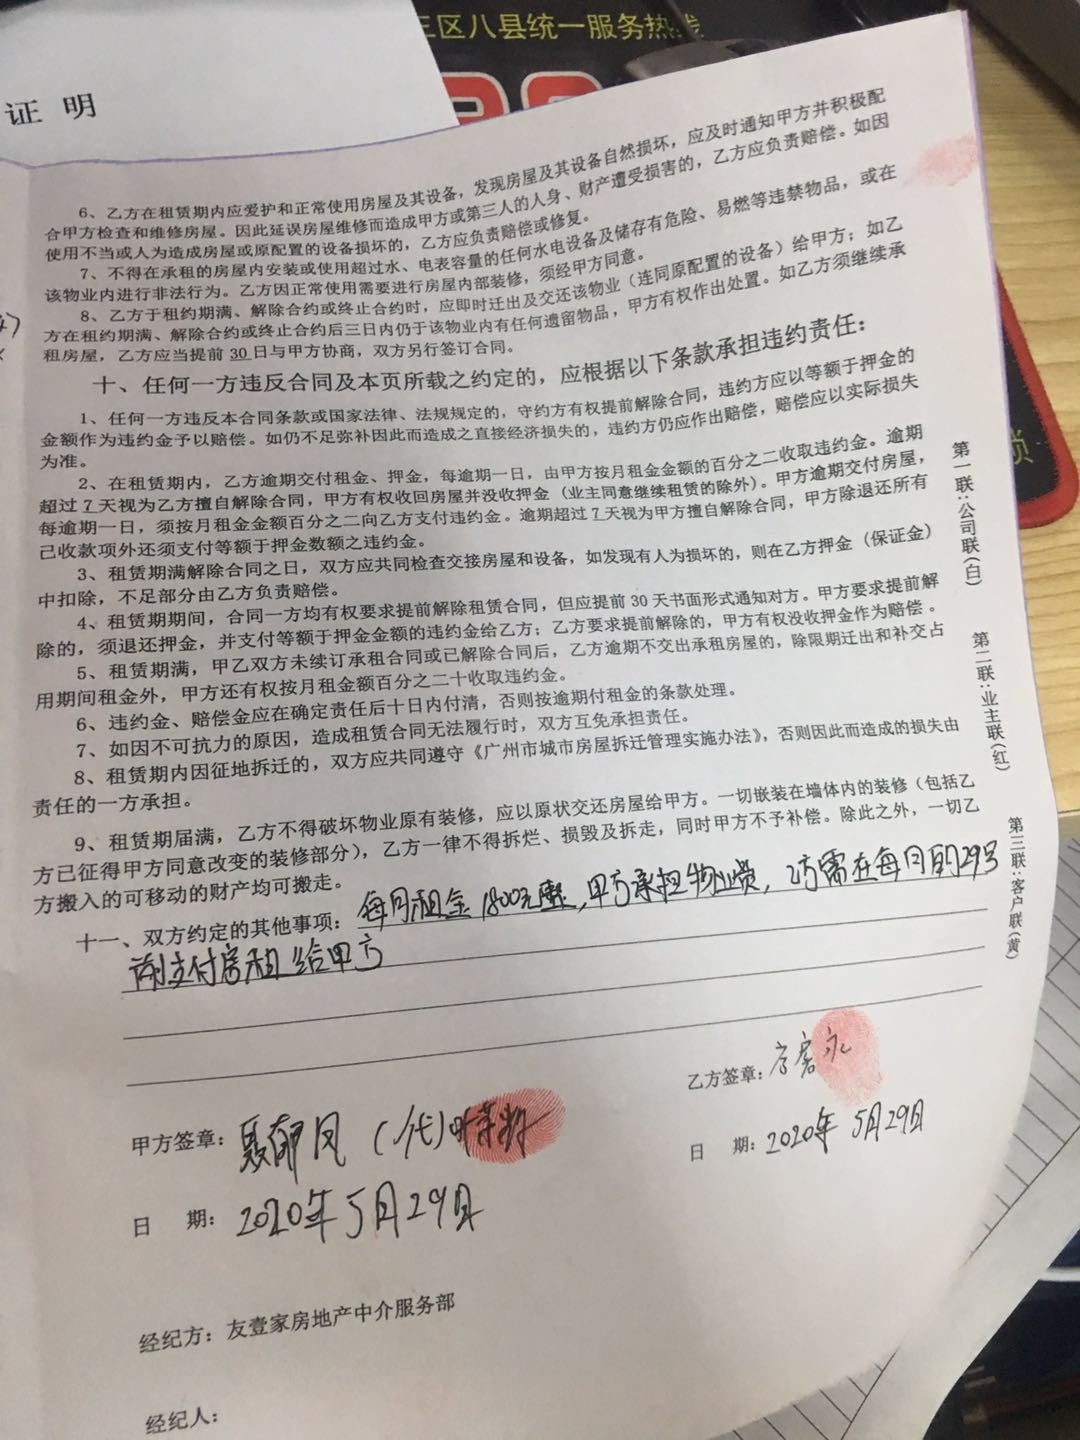 三区八县统一服务热线
证 明
6、乙方在租赁期内应爱护和正常使用房屋及其设备，发现房屋及其设备自然损坏，应及时通知甲方并积极配
合甲方检查和维修房屋。因此延误房屋维修而造成甲方或第三人的人身、财产遭受损害的，乙方应负责赔偿。如因
使用不当或人为造成房屋或原配置的设备损坏的，乙方应负责赔偿或修复。
7、不得在承租的房屋内安装或使用超过水、电表容量的任何水电设备及储存有危险、易燃等违禁物品，或在
该物业内进行非法行为。乙方因正常使用需要进行房屋内部装修，须经甲方同意。
8、乙方于租约期满、解除合约或终止合约时，应即时迁出及交还该物业（连同原配置的设备）给甲方；如乙
方在租约期满、解除合约或终止合约后三日内仍于该物业内有任何遗留物品，甲方有权作出处置。如乙方须继续承
租房屋，乙方应当提前 30 日与甲方协商，双方另行签订合同。
十、任何一方违反合同及本页所载之约定的，应根据以下条款承担违约责任：
1、任何一方违反本合同条款或国家法律、法规规定的，守约方有权提前解除合同，违约方应以等额于押金的
金额作为违约金予以赔偿。如仍不足弥补因此而造成之直接经济损失的，违约方仍应作出赔偿，赔偿应以实际损失
为准。
2、在租赁期内，乙方逾期交付租金、押金，每逾期一日，由甲方按月租金金额的百分之二收取违约金。逾期
超过 7 天视为乙方擅自解除合同，甲方有权收回房屋并没收押金（业主同意继续租赁的除外）。甲方逾期交付房屋，
每逾期一日，须按月租金金额百分之二向乙方支付违约金。逾期超过 7 天视为甲方擅自解除合同，甲方除退还所有
己收款项外还须支付等额于押金数额之违约金。
3、租赁期满解除合同之日，双方应共同检查交接房屋和设备，如发现有人为损坏的，则在乙方押金（保证金）
中扣除，不足部分由乙方负责赔偿。
4、租赁期期间，合同一方均有权要求提前解除租赁合同，但应提前 30 天书面形式通知对方。甲方要求提前解
除的，须退还押金，并支付等额于押金金额的违约金给乙方；乙方要求提前解除的，甲方有权没收押金作为赔偿。
5、租赁期满，甲乙双方未续订承租合同或已解除合同后，乙方逾期不交出承租房屋的，除限期迁出和补交占
用期间租金外，甲方还有权按月租金额百分之二十收取违约金。
6、违约金、赔偿金应在确定责任后十日内付清，否则按逾期付租金的条款处理。
7、如因不可抗力的原因，造成租赁合同无法履行时，双方互免承担责任。
8、租赁期内因征地拆迁的，双方应共同遵守《广州市城市房屋拆迁管理实施办法》，否则因此而造成的损失由
责任的一方承担。
9、租赁期届满，乙方不得破坏物业原有装修，应以原状交还房屋给甲方。一切嵌装在墙体内的装修（包括乙
方已征得甲方同意改变的装修部分），乙方一律不得拆烂、损毁及拆走，同时甲方不予补偿。除此之外，一切乙
方搬入的可移动的财产均可搬走。
十一、双方约定的其他事项：每月租金1800元整，甲方承担物业费，乙方需在每月的29号
前支付房租给甲方
乙方签章：
日 期：2020年 5月29日
甲方签章：（代）
日 期：2020年5月29日
经纪方：友壹家房地产中介服务部
经纪人：
第一联：公司联（白）
第二联：业主联（红）
第三联：客户联（黄）